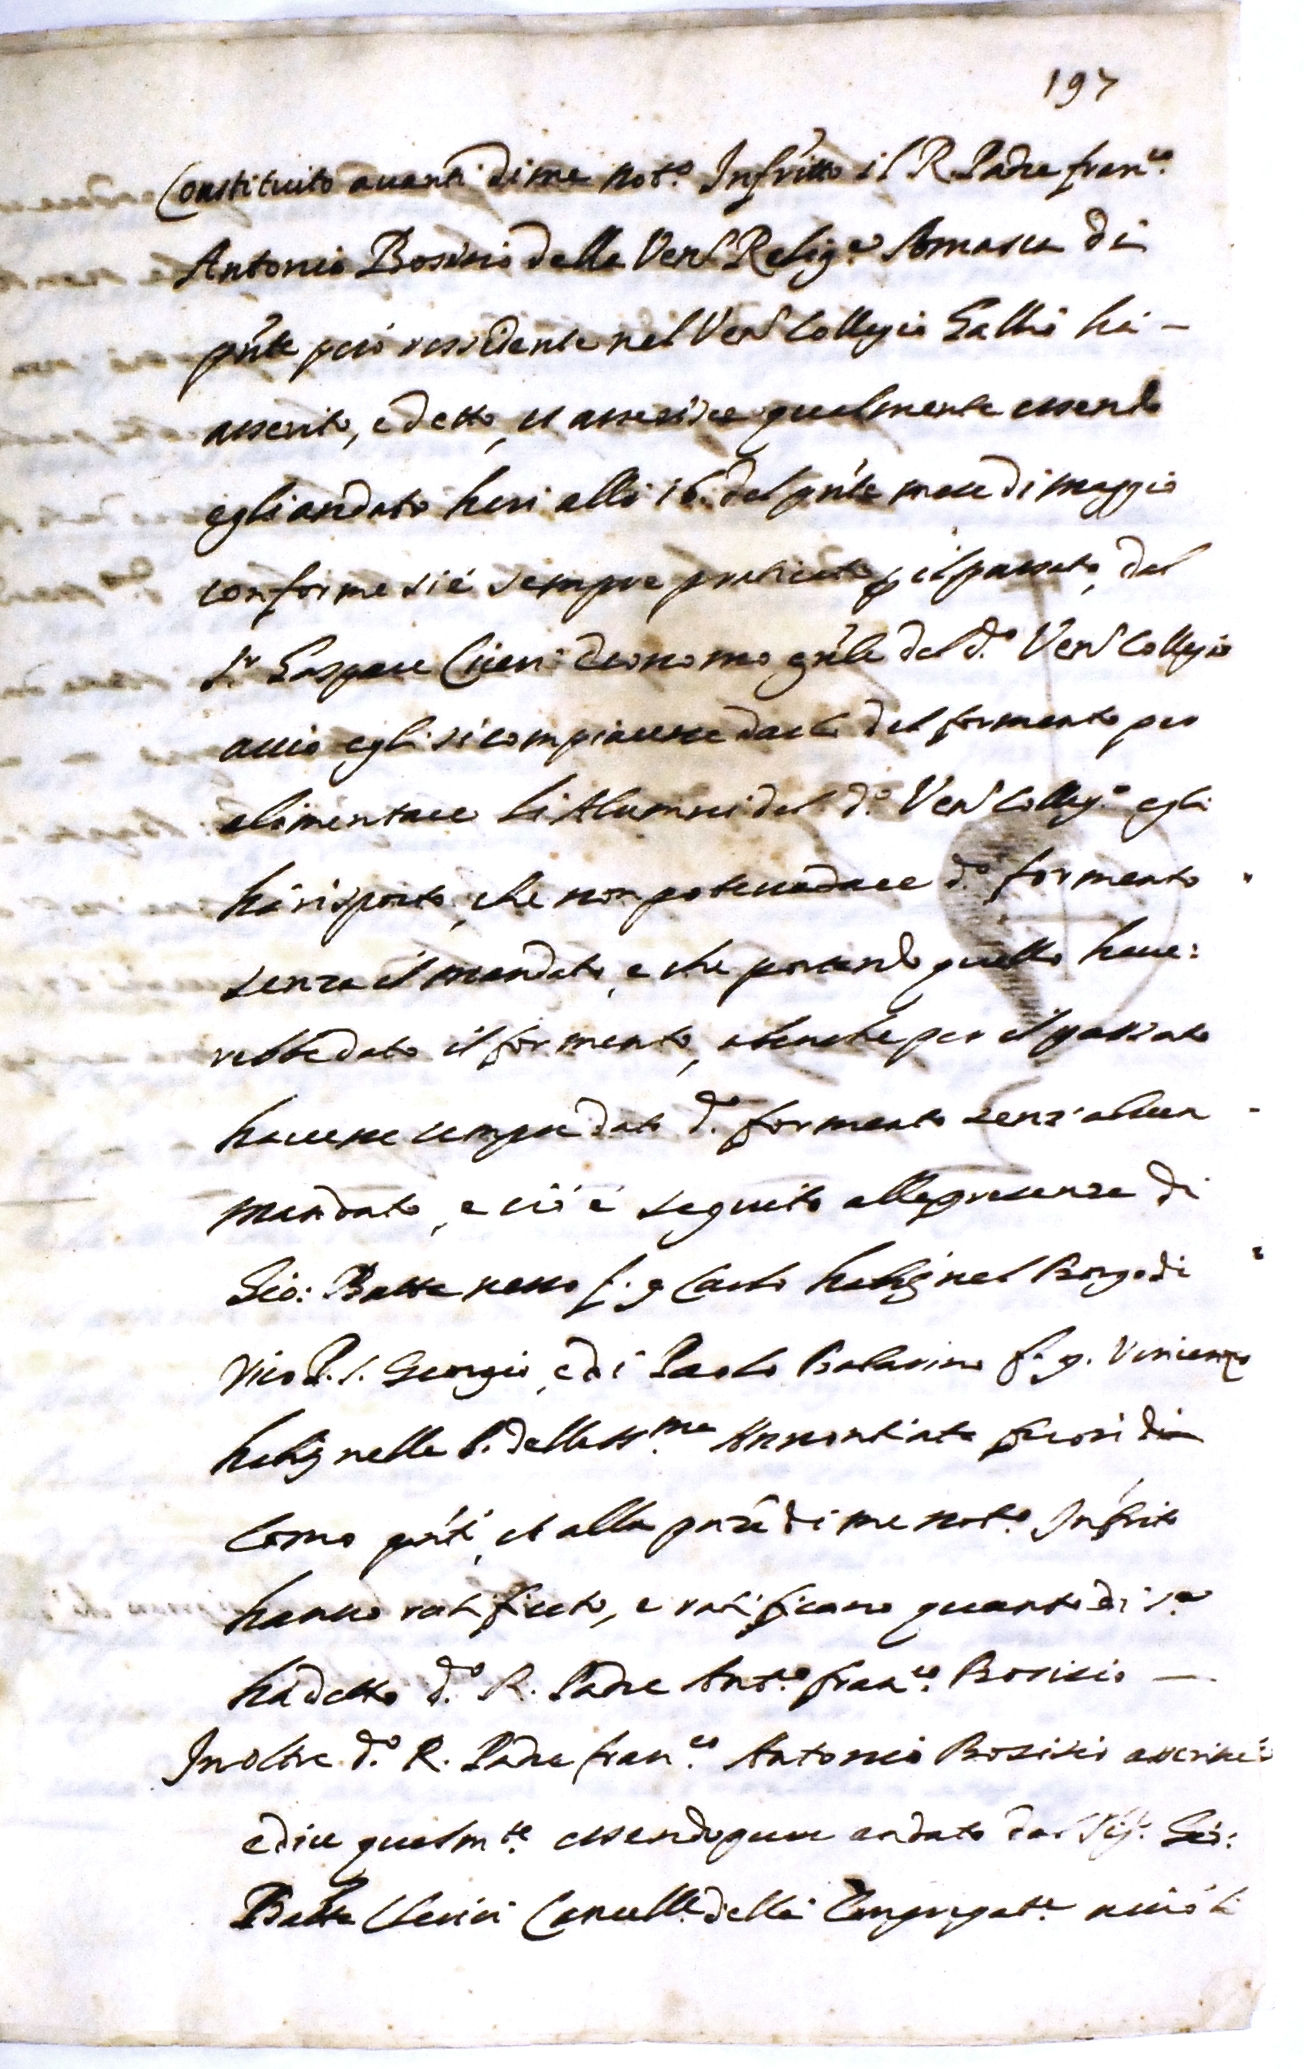 197
Constituito auanti di me Not.o Infr̃itto il R. Padre fran.co
Antonio Bosisio della Ven.l Relig.e Somasca di
pñte però residente nel Ven.l Collegio Gallio hà -
asserito, e detto, et asserisce qualmente essendo
egli andato heri alli 16. del pñte mese di maggio
conforme si è sempre praticato p il passato, dal
S.r Gaspare Clierici Economo gñle del d.o Ven.l Collegio
acciò egli si compiacesse darli del formento per
alimentare li Alumni del d.o Ven.l Colleg.o egli
hà risposto, che non poteua dare d.o formento
senza il mandato, e che portando quello haue:
rebbe dato il formento, abenche per il passato
hauesse sempre dato d.o formento senz'alcun
mandato, e ciò è seguito alla presenza di
Gio: Batta f. q. Carlo habñ nel Borgo di
Vico P. S. Georgio, e di Paolo Ballarino f. q. Vincenzo
habñ nella P. della SS.ma Annontiata fuori di
Como pñti, et alla pñza di me not.o Infr̃itto
hanno ratificato, e ratificano quanto di s.a
hà detto d.o R. Padre Ant.o fran.co Bosisio —
Inoltre d.o R. Padre fran.co Antonio Bosisio asserisce
e dice qualm.te essendo pure andato dal Sig.r Gio:
Batta Clerici Cancell.e della Congregat.e acciò li